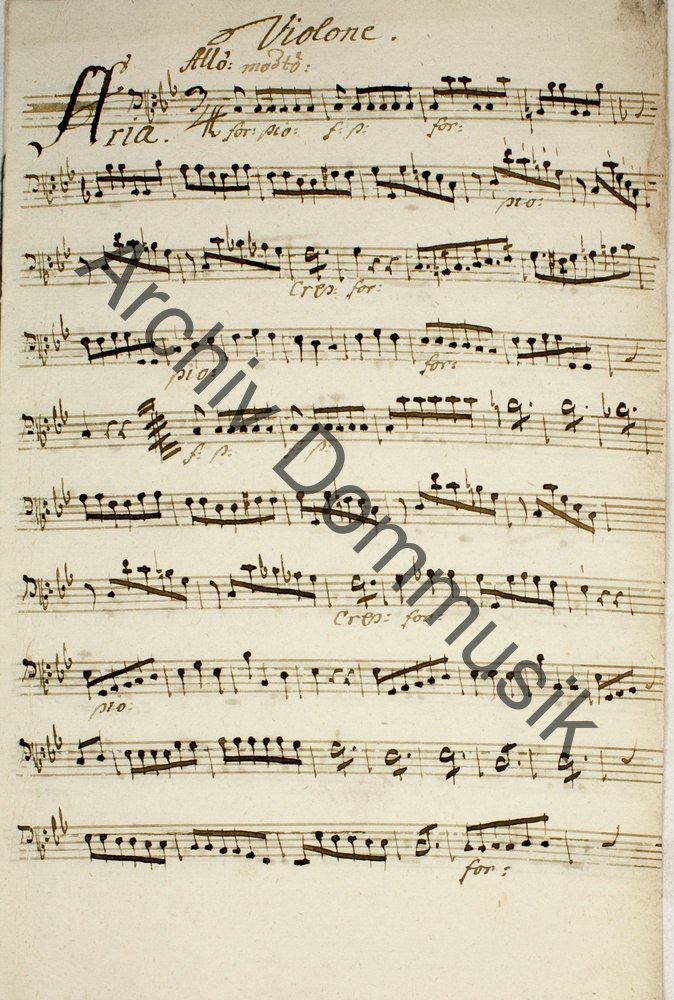 Violone.
Allo: modto:
Aria. 3/4
for: pio: f: p: for:
pio:
Cres: for:
pio: for:
f: p: p:
Cres: for:
pio:
for:
Archiv Dommusik